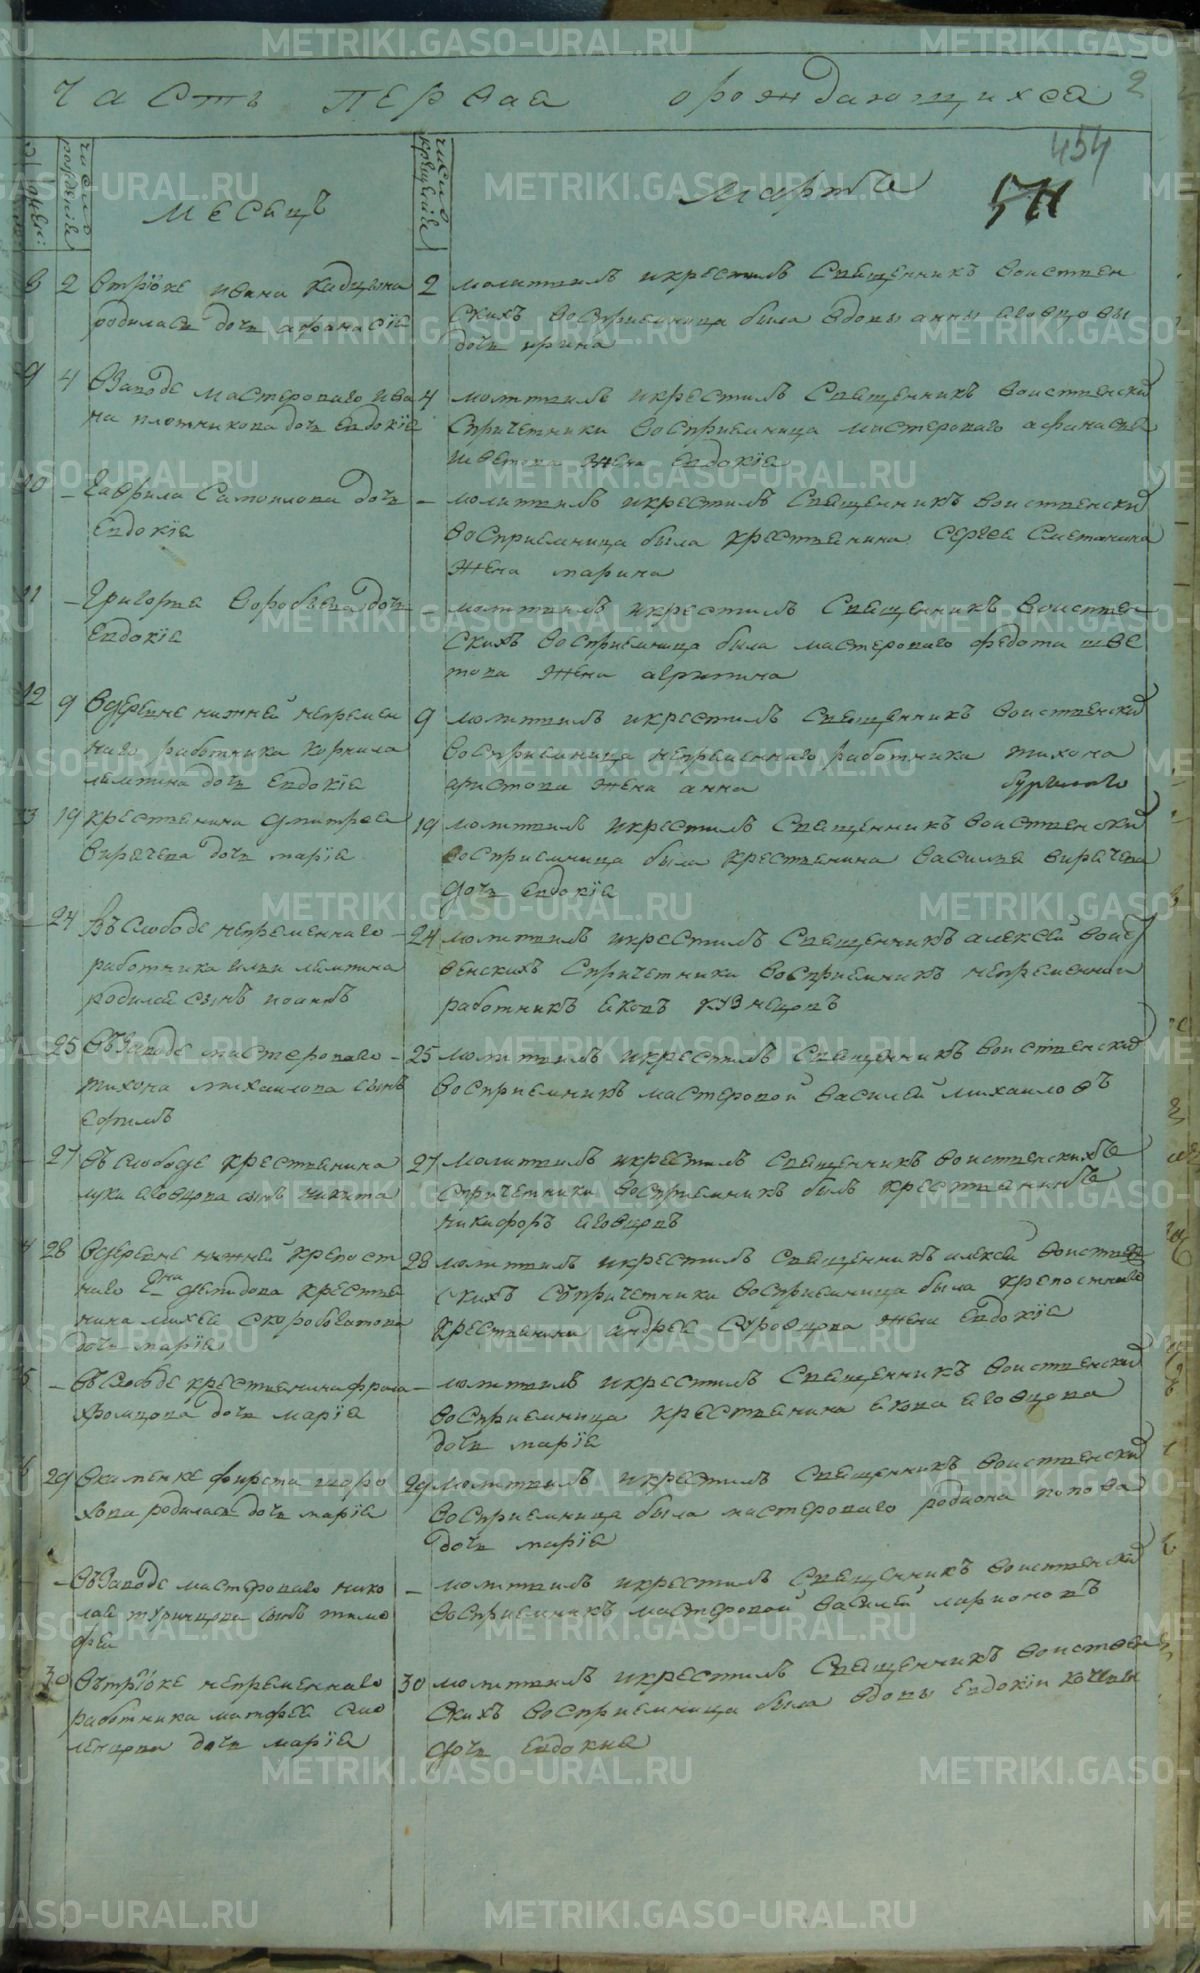 часть первая орождающихся 2
454
511
число рожденїя
месецъ
число крещенїя
марта
8 2 втрїоке ивана кадцына
родилась дочь афанасїя
2 молитвилъ икрестилъ Священникъ воинствен
скихъ восприемница была вдовы анны яговцовы
дочь ирина
9 4 вЗаводе мастероваго ива
на плотникова дочь Евдокїя
4 молитвилъ икрестилъ Священникъ воинственский
Спричетники восприемница мастероваго афанасья
шветова жена Евдокїя
10 – Гаврила Самоилова дочь
Евдокїя
– молитвилъ икрестилъ Священникъ воинственский
восприемница была крестьянина Сергея Сметанина
жена марина
11 – Григорья воробьева дочь
Евдокїя
– молитвилъ икрестилъ Священникъ воинствен
скихъ восприемница была мастероваго федота шве
това жена агрипина
12 9 вдеревне нижней непремен
наго работника корнила
лямпина дочь Евдокїя
9 молитвилъ икрестилъ Священникъ воинственский
восприемница непременнаго работника тихона
аристова жена анна
13 19 крестьянина дмитрея
вирачева дочь марїя
19 молитвилъ икрестилъ Священникъ воинственский
восприемница была крестьянина василья вирачева
дочь евдокїя
24 Въ Слободе непременнаго
работника ильи лямпина
родился сынъ иоаннъ
24 молитвилъ икрестилъ Священникъ алексей воинст
венскихъ Спричетники восприемникъ непременный
работникъ яковъ кузнецовъ
25 въЗаводе мастероваго
тихона михаилова сынъ
ефимъ
25 молитвилъ икрестилъ Священникъ воинственский
восприемникъ мастеровой василей михаиловъ
27 въ слободе крестьянина
луки яговцова сынъ никита
27 молитвилъ икрестилъ Священникъ воинственскихъ
Спричетники восприемникъ былъ крестьянинъ
никифоръ яговцовъ
4 28 вдеревне нижней крепост
наго Гна демидова крестья
нина михея скоробогатова
дочь марїя
28 молитвилъ икрестилъ Священникъ алексей воинствен
скихъ Съпричетники восприемница была крепостнаго
крестьянина андрея Суровцова жена Евдокїя
5 – въслободе крестьянина фрола
хромцова дочь марїя
– молитвилъ икрестилъ Священникъ воинственский
восприемница крестьянина якова яговцова
дочь марїя
6 29 вкаменке фирста шоро
хова родилась дочь марїя
29 молитвилъ икрестилъ Священникъ воинственский
восприемница была мастероваго родиона попова
дочь марїя
– въЗаводе мастероваго нико
лая туринцова сынъ тимо
фей
– молитвилъ икрестилъ Священникъ воинственский
восприемникъ мастеровой василей ларионовъ
30 вътрїоке непременнаго
работника матфея смо
ленцова дочь марїя
30 молитвилъ икрестилъ Священникъ воинствен
скихъ восприемница была вдовы Евдокїи
дочь Евдокия